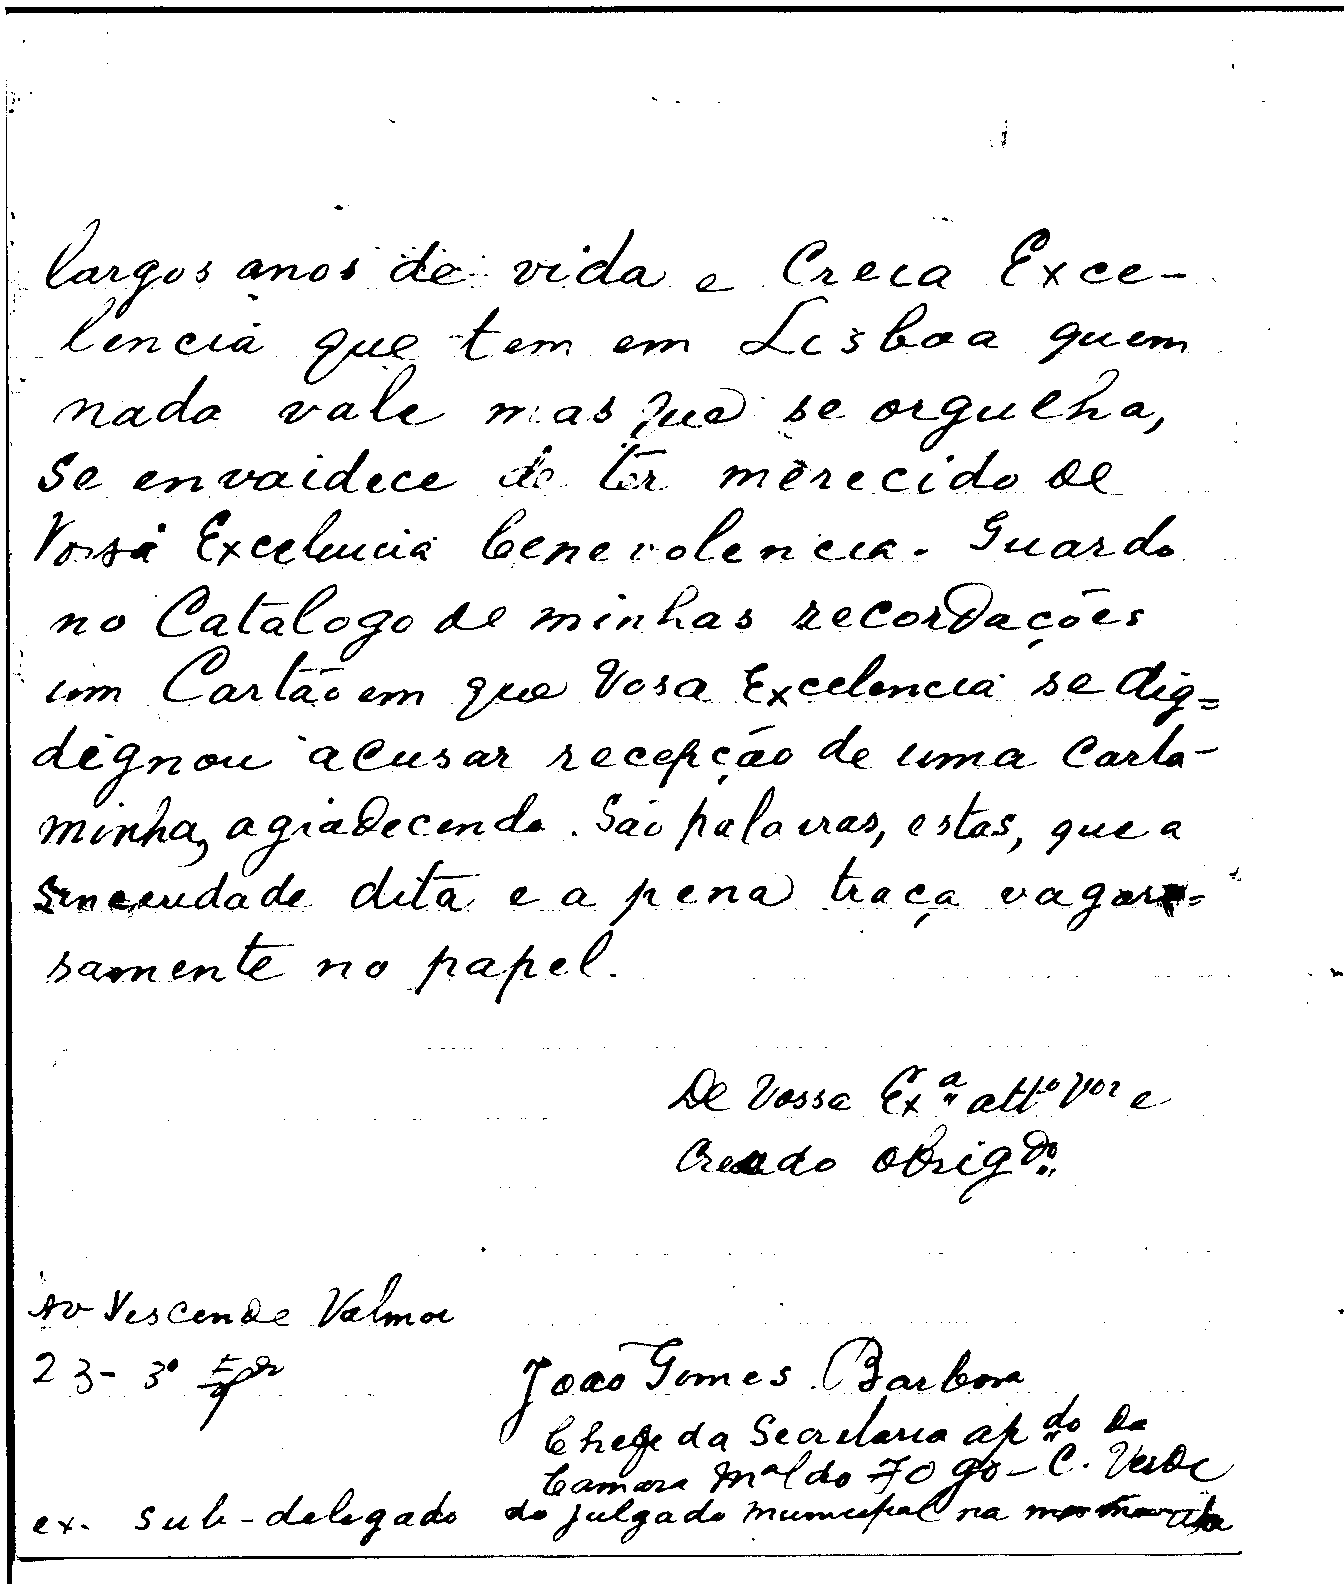 largos anos de vida e Creia Exce-
lencia que tem em Lisboa quem
nada vale mas que se orgulha,
se envaidece de ter merecido de
Vossa Excelencia benevolencia. Guardo
no Catalogo de minhas recordações
um Cartão em que Vosa Excelencia se dig=
dignou acusar recepção de uma carta-
minha, agradecendo. São palavras, estas, que a
sinceridade dita e a pena traça vagaro=
samente no papel.
De Vossa Exª attº Vor e
Creado obrigdo.
Av Visconde Valmor
23-3º
João Gomes Barbosa
Chefe da Secretaria apdo da
Camara Mal do Fogo - C. Verde
ex. sub-delegado do julgado municipal na mesma